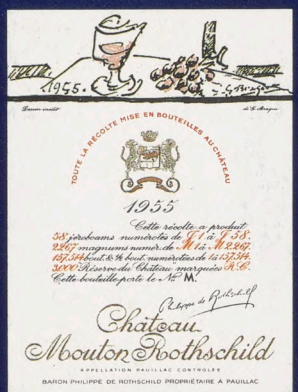 1955.
G. Braque
Dessin inédit
de G. Braque
TOUTE LA RÉCOLTE MISE EN BOUTEILLES AU CHÂTEAU
1955
Cette récolte a produit
58 jéroboams numérotés de J 1 à J 58.
2267 magnums numér. de M 1 à M 2267.
157.514 bout. & ½ bout. numérotées de 1 à 157.514.
3.000 Réserve du Château marquées R.C.
Cette bouteille porte le No M.
Philippe de Rothschild
Château
Mouton Rothschild
APPELLATION PAUILLAC CONTROLÉE
BARON PHILIPPE DE ROTHSCHILD PROPRIÉTAIRE A PAUILLAC